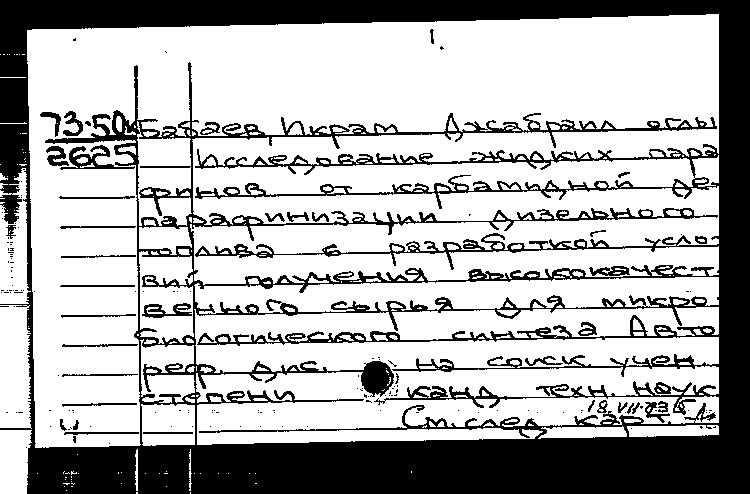 1.
73-50к Бабаев, Икрам Джабраил оглы
2625 Исследование жидких пара
финов от карбамидной де-
парафинизации дизельного
топлива с разработкой усло-
вий получения высококачест-
венного сырья для микро-
биологического синтеза. Авто
реф. дис. на соиск. учен.
степени канд. техн. наук.
См. след. карт.
4